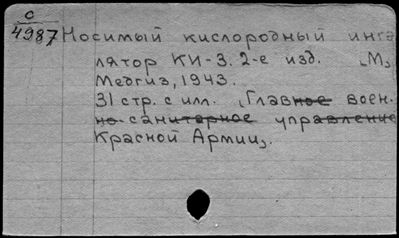 С
4987
Носимый кислородный инга
лятор КИ-3. 2-е изд. [М.]
Медгиз, 1943.
31 стр. с илл. [Главное воен.
но-санитарное управление
Красной Армии].